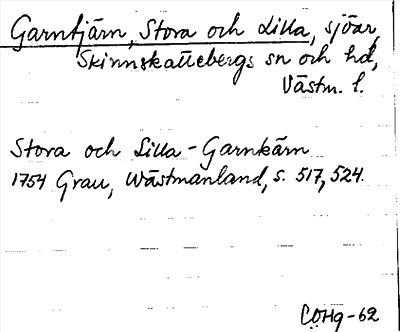 Garntjärn, Stora och Lilla, sjöar,
Skinnskattebergs sn och hd,
Västm. l.
Stora och Lilla-Garnkärn
1754 Grau, Wästmanland, s. 517, 524.
COHg-62